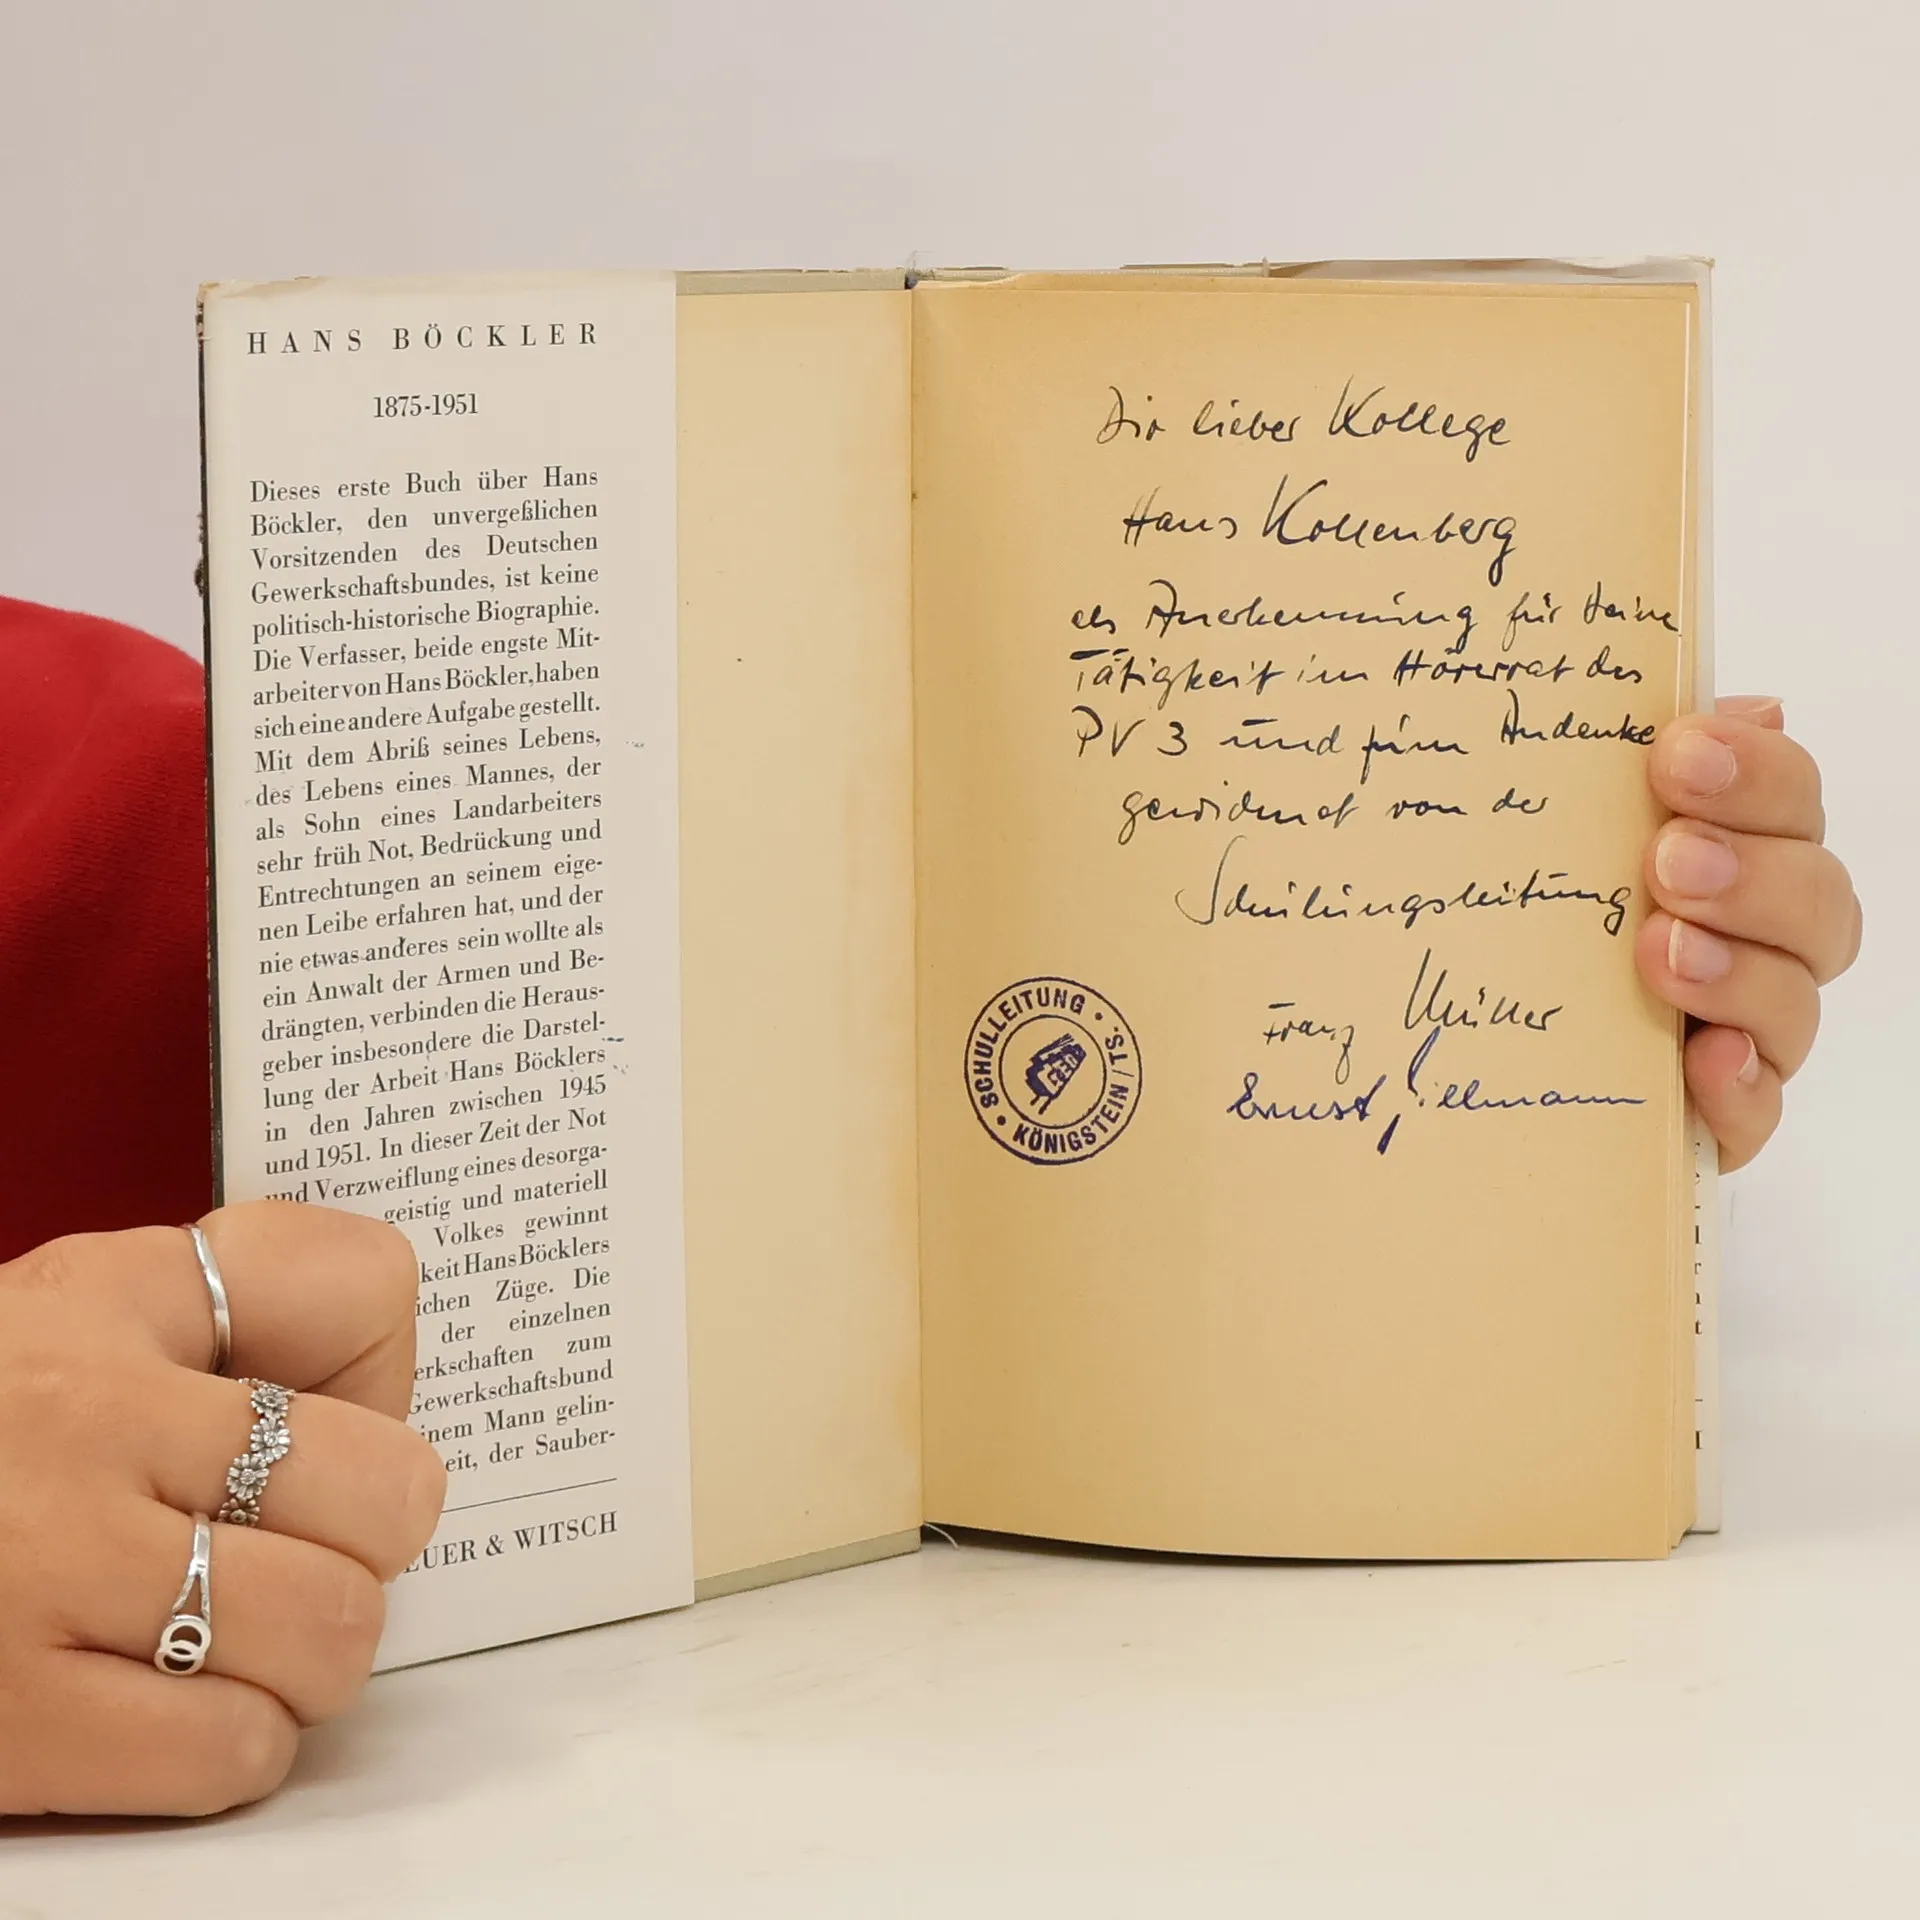 HANS BÖCKLER
1875-1951
Dieses erste Buch über Hans
Böckler, den unvergeßlichen
Vorsitzenden des Deutschen
Gewerkschaftsbundes, ist keine
politisch-historische Biographie.
Die Verfasser, beide engste Mit-
arbeiter von Hans Böckler, haben
sich eine andere Aufgabe gestellt.
Mit dem Abriß seines Lebens,
des Lebens eines Mannes, der
als Sohn eines Landarbeiters
sehr früh Not, Bedrückung und
Entrechtungen an seinem eige-
nen Leibe erfahren hat, und der
nie etwas anderes sein wollte als
ein Anwalt der Armen und Be-
drängten, verbinden die Heraus-
geber insbesondere die Darstel-
lung der Arbeit Hans Böcklers
in den Jahren zwischen 1945
und 1951. In dieser Zeit der Not
und Verzweiflung eines desorga-
geistig und materiell
Volkes gewinnt
keit Hans Böcklers
ichen Züge. Die
der einzelnen
erkschaften zum
Gewerkschaftsbund
einem Mann gelin-
eit, der Sauber-
EUER & WITSCH
Dir lieber Kollege
Hans Kollenberg
als Anerkennung für Deine
Tätigkeit im Hörerrat des
PV 3 und zum Andenke
gewidmet von der
Schulungsleitung
Franz Müller
Ernst
SCHULLEITUNG
KÖNIGSTEIN/TS.